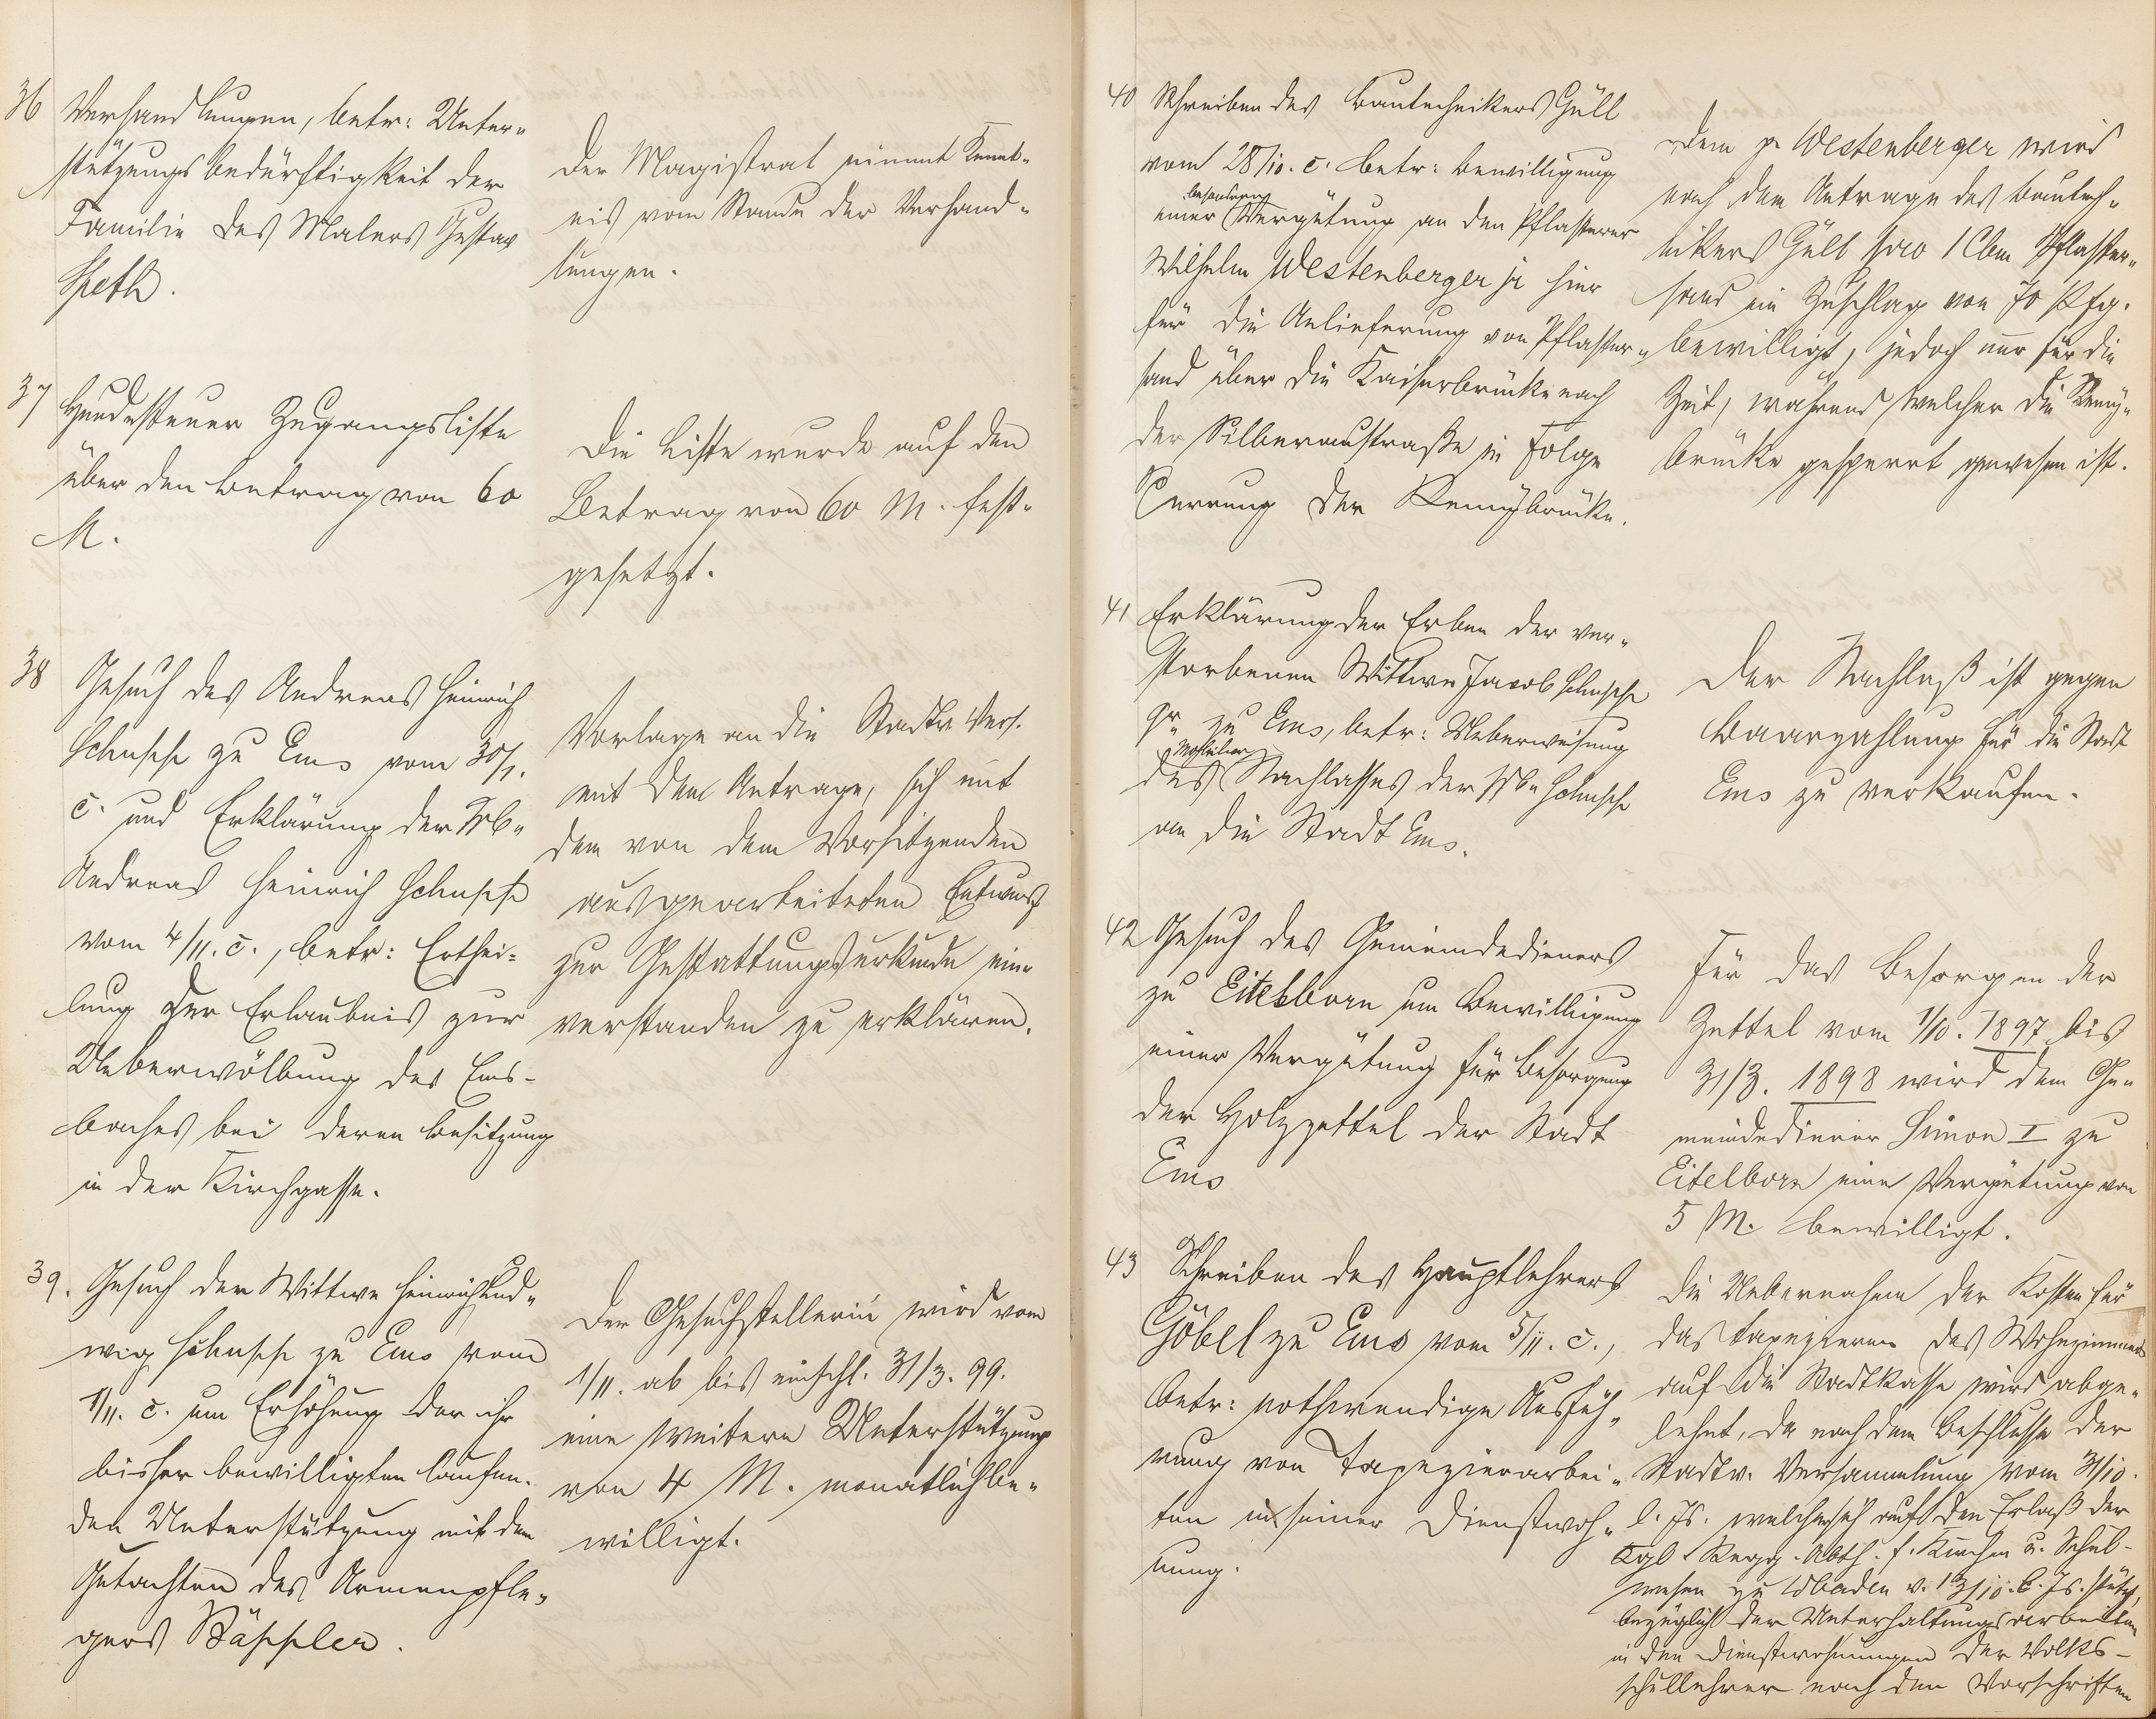 36
Verhandlungen, betr: Unter-
stützungsbedürftigkeit der
Familie des Malers Gustav
Speth.
Der Magistrat nimmt Kennt-
nis vom Stande der Verhand-
lungen.
37
Hundesteuer Zugangsliste
über den Betrag von 60
M.
Die Liste wurde auf den
Betrag von 60 M. fest-
gesetzt.
38
Gesuch des Andreas Heinrich
zu Ems vom
c. und Erklärung der
Andreas Heinrich
vom 4/11. c., betr: Erthei-
lung der Erlaubnis zur
Ueberwölbung des Ems-
baches bei deren Besitzung
in der Kirchgasse.
Vorlage an die Stadtv. Vers.
mit dem Antrage, sich mit
dem von dem Vorsitzenden
ausgearbeiteten Entwurf
zur Gestattungsurkunde ein-
verstanden zu erklären.
39.
Gesuch der Wittwe Heinrich Lud-
wig zu Ems vom
1/11. c. um Erhöhung der ihr
bisher bewilligten laufen-
den Unterstützung mit dem
Gutachten des Armenpfle-
gers Bäppler.
Der Gesuchstellerin wird vom
1/11. ab bis einschl. 31/3. 99.
eine weitere Unterstützung
von 4 M. monatlich be-
willigt.
40
Schreiben des Bautechnikers Güll
vom 28/10. c. betr: Bewilligung
besonderen
einer Vergütung an den Pflasterer
Wilhelm Westenberger jr hier
für die Anlieferung von Pflaster-
sand über die Kaiserbrücke nach
der Silberaustraße in Folge
Sperrung der Remybrücke.
Dem p. Westenberger wird
nach dem Antrage des Bautech-
nikers Güll pro 1 Cbm Pflaster-
sand ein Zuschlag von 70 Pfg.
bewilligt, jedoch nur für die
Zeit, während welcher die Remy-
brücke gesperrt gewesen ist.
41
Erklärung der Erben der ver-
storbenen Wittwe Jacob
zu Ems, betr: Ueberweisung
Mobiliar
des Nachlasses der
an die Stadt Ems.
Der Nachlaß ist gegen
Baarzahlung für die Stadt
Ems zu verkaufen.
42
Gesuch des Gemeindedieners
zu Eitelborn um Bewilligung
einer Vergütung für Besorgung
der Holzzettel der Stadt
Ems
Für das Besorgen der
Zettel vom 1/10. 1897 bis
31/3. 1898 wird dem Ge-
meindediener Simon I zu
Eitelborn eine Vergütung von
5 M. bewilligt.
43
Schreiben des Hauptlehrers
Göbel zu Ems vom 5/11. c.,
betr: nothwendige Ausfüh-
rung von Tapezierarbei-
ten in seiner Dienstwoh-
nung.
Die Uebernahme der Kosten für
das Tapezieren des Wohnzimmers
auf die Stadtkasse wird abge-
lehnt, da nach dem Beschlusse der
Stadtv. Versammlung vom 31/10.
l. Js. welcher sich auf den Erlaß der
Kgl. Regg. Abth. f. Kirchen u. Schul-
wesen zu Wbaden v. 13/10. l. Js. stützt,
bezüglich der Unterhaltungsarbeiten
in den Dienstwohnungen der Volks-
schullehrer nach den Vorschriften